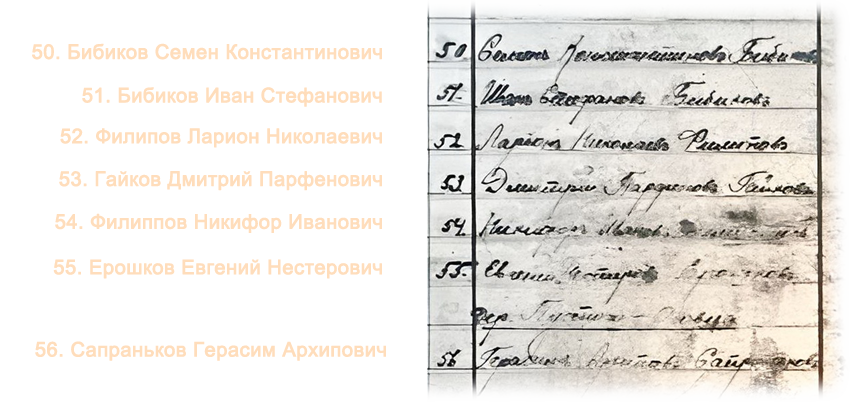 50. Бибиков Семен Константинович
51. Бибиков Иван Стефанович
52. Филипов Ларион Николаевич
53. Гайков Дмитрий Парфенович
54. Филиппов Никифор Иванович
55. Ерошков Евгений Нестерович
56. Сапраньков Герасим Архипович
50. Семенъ Константиновъ Бибиковъ
51. Иванъ Стефановъ Бибиковъ
52. Ларіонъ Николаевъ Филиповъ
53. Дмитрій Парфеновъ Гайковъ
54. Никифоръ Ивановъ
55. Евгеній Нестеровъ Ерошковъ
дер.
56 Герасимъ Архиповъ Сапраньковъ